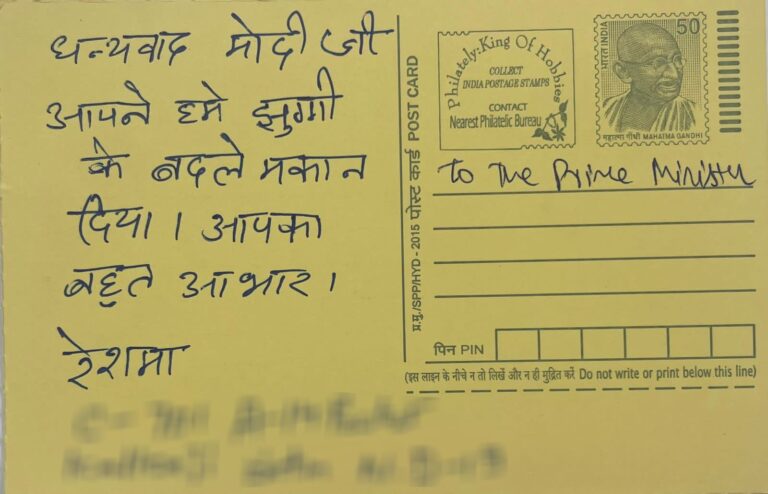 धन्यवाद मोदी जी
आपने हमे झुग्गी
के बदले मकान
दिया। आपका
बहुत आभार।
रेशमा
Philately: King Of Hobbies
COLLECT
INDIA POSTAGE STAMPS
CONTACT
Nearest Philatelic Bureau
भारत INDIA
50
महात्मा गाँधी MAHATMA GANDHI
प्र.मु./SPP/HYD - 2015 पोस्ट कार्ड POST CARD
To The Prime Minister
पिन PIN
(इस लाइन के नीचे न तो लिखें और न ही मुद्रित करें Do not write or print below this line)